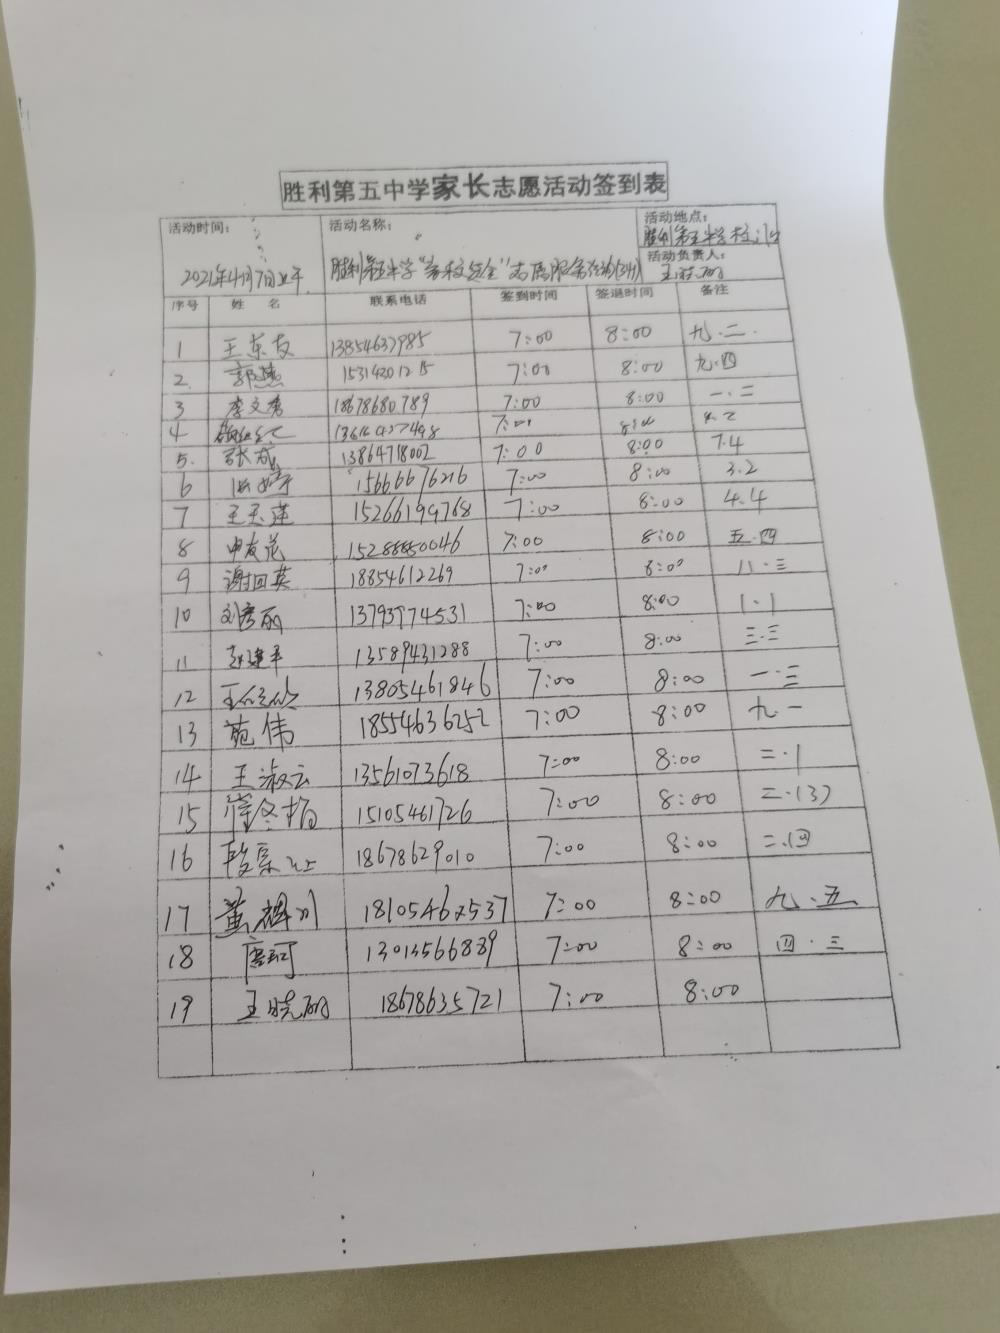 胜利第五中学家长志愿活动签到表
活动时间: 活动名称: 活动地点:
胜利第五中学校门口
2021年4月7日上午 胜利第五中学"家校安全"志愿服务活动 活动负责人:
序号 姓 名 联系电话 签到时间 签退时间 备注
1 王东友 13854637985 7:00 8:00 九.二.
2. 郭燕 7:00 8:00 九.四
3 李文秀 18678680789 7:00 8:00 一.二
4 7:00 8:00
5. 张成 13864718002 7:00 8:00 7.4
6 15666676276 7:00 8:00 3.2
7 王玉莲 15266199768 7:00 8:00 4.4
8 申友花 15288850046 7:00 8:00 五.四
9 谢回英 18854612269 7:00 8:00 八.三
10 刘秀丽 13793774531 7:00 8:00 1.1
11 赵建平 13589431288 7:00 8:00 三.三
12 13805461846 7:00 8:00 一.三
13 苑伟 18554636252 7:00 8:00 九.一
14 王淑云 13561073618 7:00 8:00 二.1
15 15105461726 7:00 8:00 二.(3)
16 18678629010 7:00 8:00 二.四
17 18105462537 7:00 8:00 九.五
18 唐珂 13013566889 7:00 8:00 四.三
19 王晓丽 18678635721 7:00 8:00